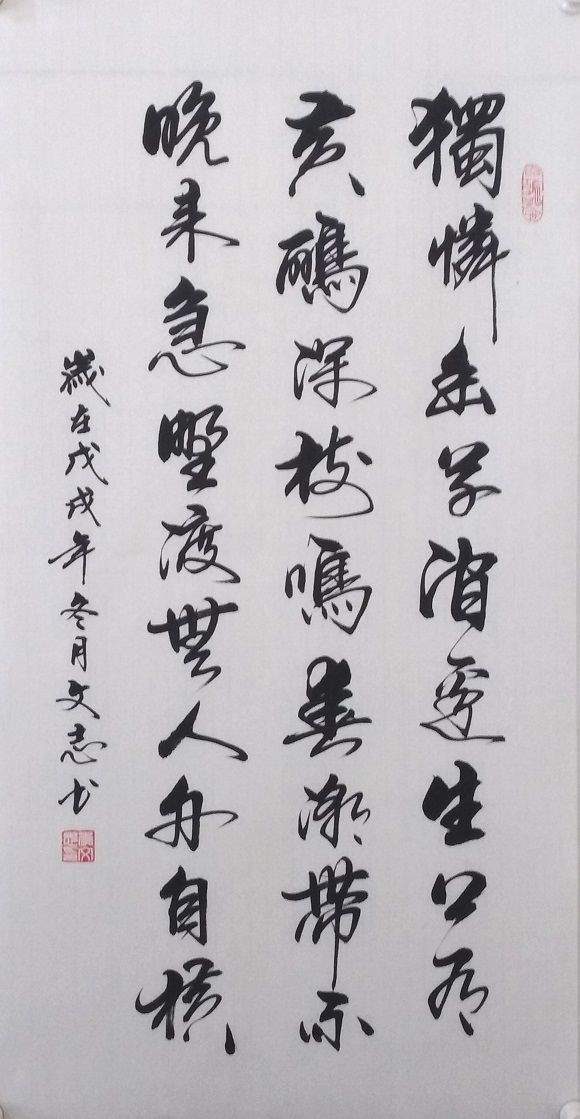 獨憐幽草澗邊生上有
黃鸝深樹鳴春潮帶雨
晚来急野渡無人舟自橫
歲在戊戌年冬月文志书